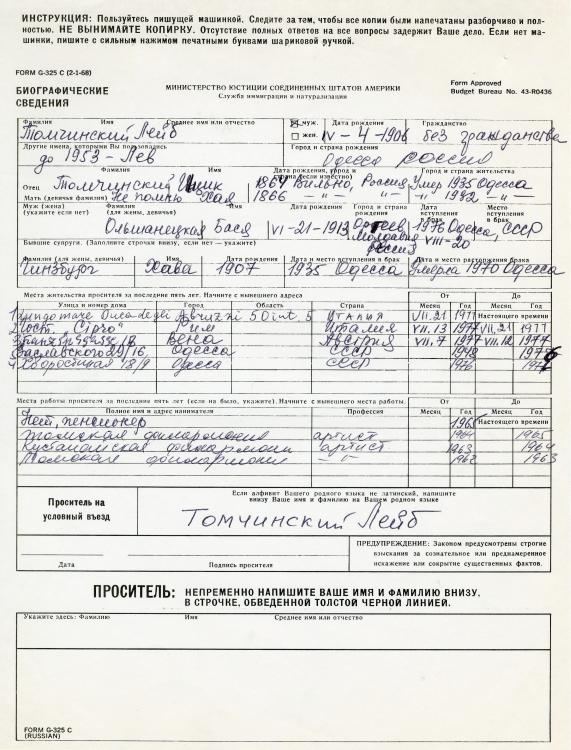 ИНСТРУКЦИЯ: Пользуйтесь пишущей машинкой. Следите за тем, чтобы все копии были напечатаны разборчиво и пол-
ностью. НЕ ВЫНИМАЙТЕ КОПИРКУ. Отсутствие полных ответов на все вопросы задержит Ваше дело. Если нет ма-
шинки, пишите с сильным нажимом печатными буквами шариковой ручкой.
FORM G-325 C (2-1-68)
Form Approved
Budget Bureau No. 43-R0436
БИОГРАФИЧЕСКИЕ
СВЕДЕНИЯ
МИНИСТЕРСТВО ЮСТИЦИИ СОЕДИНЕННЫХ ШТАТОВ АМЕРИКИ
Служба иммиграции и натурализации
Фамилия Имя Среднее имя или отчество муж. Дата рождения Гражданство
Томчинский Лейб жен. IV-4-1906 без гражданства
Другие имена, которыми Вы пользовались Город и страна рождения
до 1953 - Лев Одесса Россия
Фамилия Имя Дата рождения, город и страна (если известно) Город и страна жительства
Отец Томчинский Ицик 1864 Вильно, Россия Умер 1935 Одесса
Мать (девичья фамилия) Не помню Хая 1866 - " - - " - 1932 - " -
Муж (жена) (укажите если нет) Фамилия (для жены, девичья) Имя Дата рождения Город и страна рождения Дата вступления в брак Место вступления в брак
Ольшанецкая Бася VI-21-1913 Оргеев Молдавия Россия 1976 VIII-20 Одесса, СССР
Бывшие супруги. (Заполните строчки внизу, если нет — укажите)
Фамилия (для жены, девичья) Имя Дата рождения Дата и место вступления в брак Дата и место расторжения брака
Гинзбург Хава 1907 1935 Одесса Умерла 1970 Одесса
Места жительства просителя за последние пять лет. Начните с вынешнего адреса От До
Улица и номер дома Город Область Страна Месяц Год Месяц Год
1 degli Abruzzi 50 int. 5 Италия VII.21 1977 Настоящего времени
2 Гост. Рим Италия VII.13 1977 VII.21 1977
3 Вена Австрия VII.7 1977 VII.12 1977
3 Заславского 29/16, Одесса СССР 1948 1976
4 Хворостина 18/9 Одесса СССР 1976
Места работы просителя за последние пять лет (если на было, укажите). Начните с вынешнего места работы. От До
Полное имя и адрес нанимателя Профессия Месяц Год Месяц Год
Нет, пенсионер 1965 Настоящего времени
Томская филармония артист 1964 1965
Кустанайская филармония артист 1963 1964
Томская филармония - " - 1962 1963
Проситель на
условный въезд
Если алфавит Вашего родного языка не латинский, напишите
внизу Ваше имя и фамилию на Вашем родном языке
Томчинский Лейб
Дата Подпись просителя
ПРЕДУПРЕЖДЕНИЕ: Законом предусмотрены строгие
взыскания за сознательное или преднамеренное
искажение или сокрытие существенных фактов.
ПРОСИТЕЛЬ: НЕПРЕМЕННО НАПИШИТЕ ВАШЕ ИМЯ И ФАМИЛИЮ ВНИЗУ,
В СТРОЧКЕ, ОБВЕДЕННОЙ ТОЛСТОЙ ЧЕРНОЙ ЛИНИЕЙ.
Укажите здесь: Фамилию Имя Среднее имя или отчество
FORM G-325 C
(RUSSIAN)